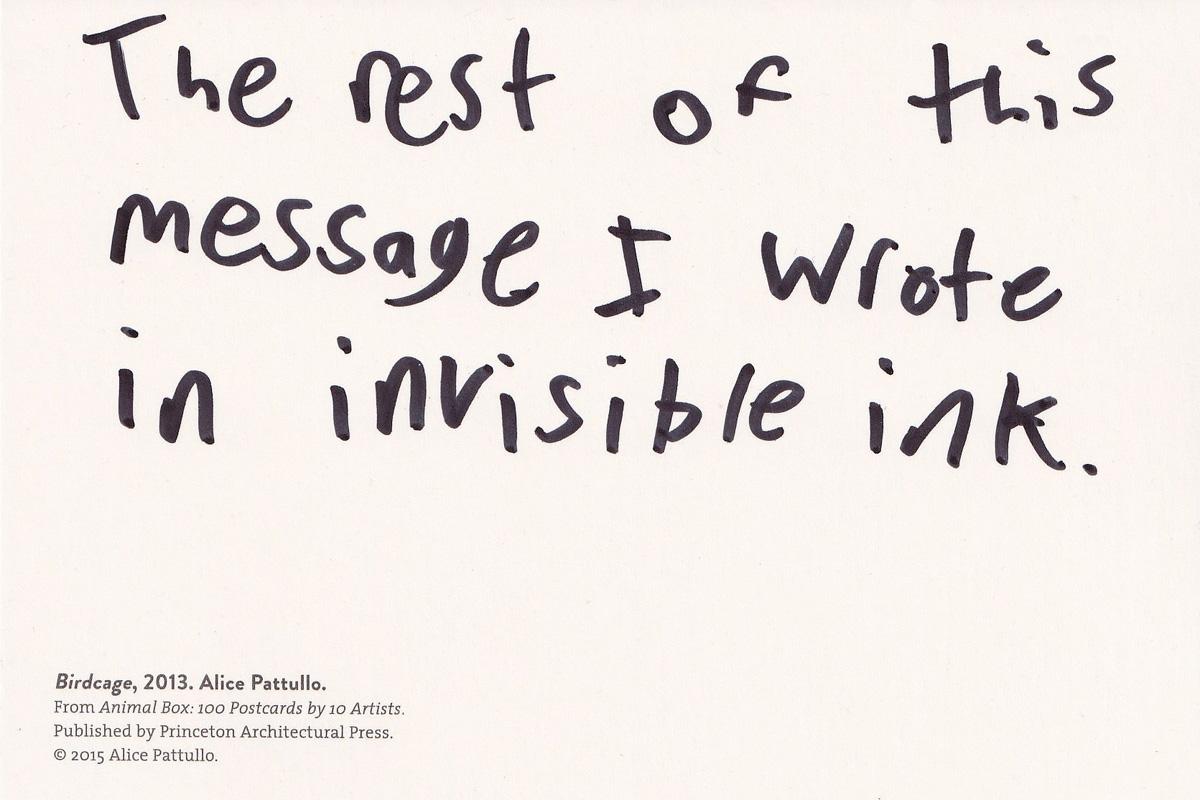 The rest of this
message I wrote
in invisible ink.
Birdcage, 2013. Alice Pattullo.
From Animal Box: 100 Postcards by 10 Artists.
Published by Princeton Architectural Press.
© 2015 Alice Pattullo.